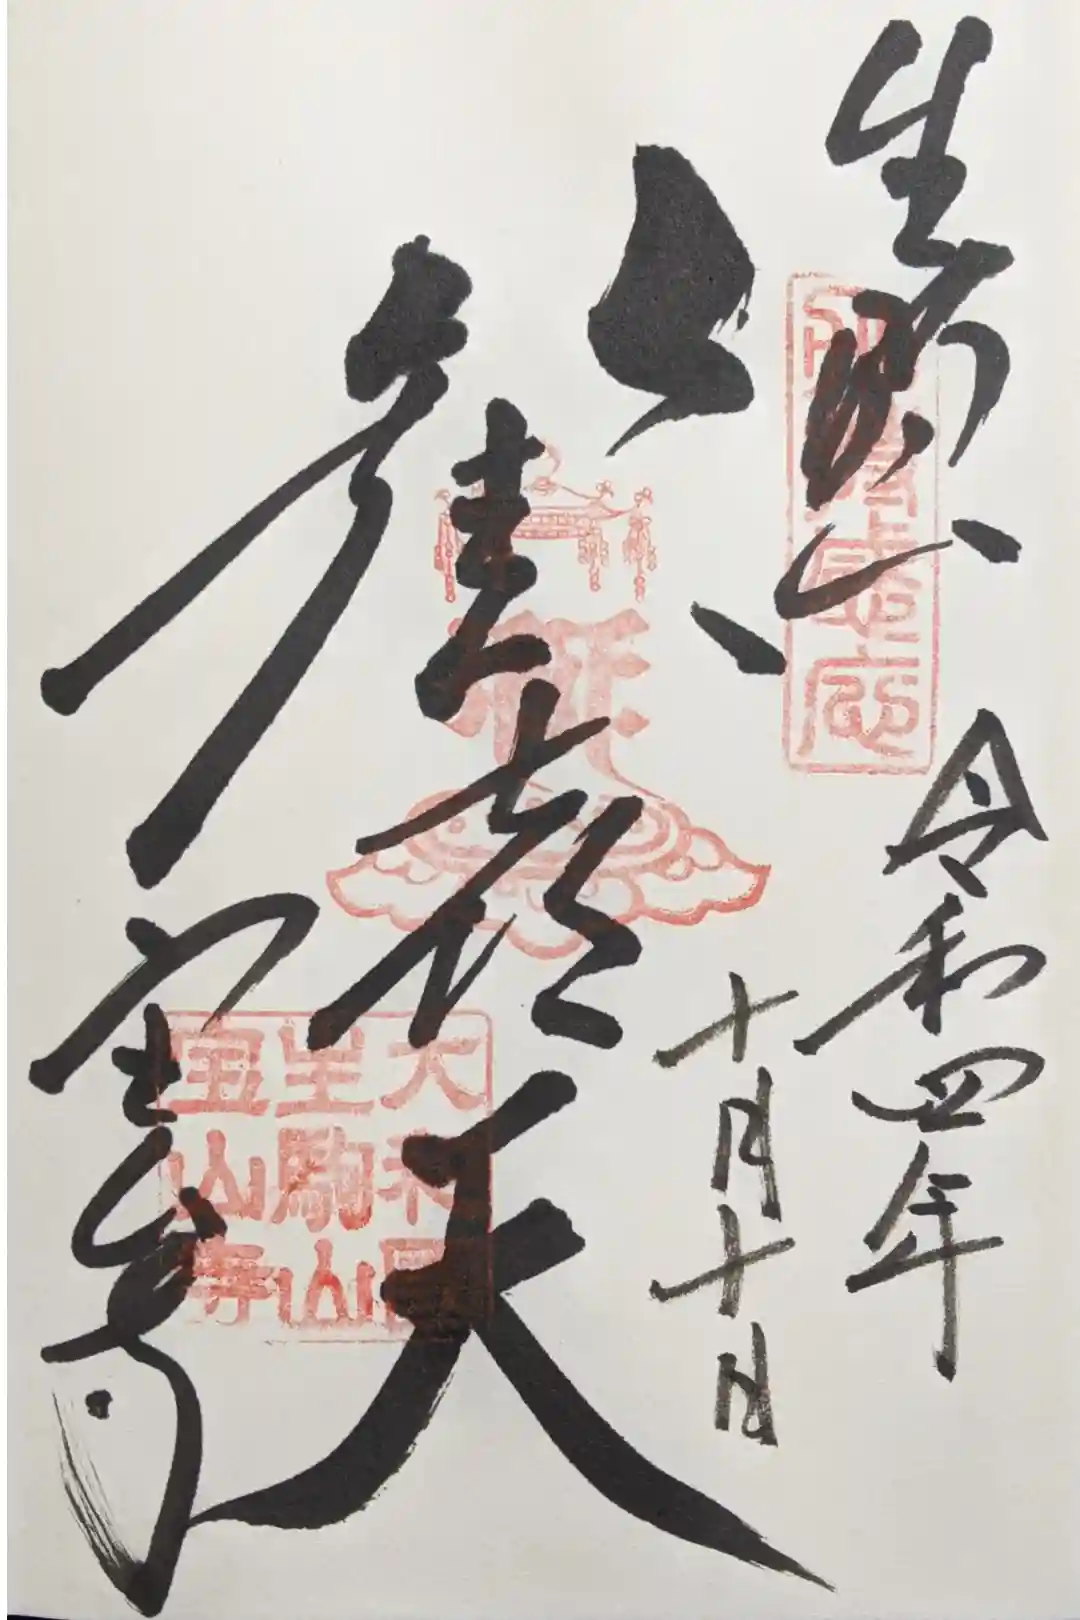 生駒山
令和四年
十月十日
歓喜天
宝山寺
感應
大和國
生駒山
宝山寺